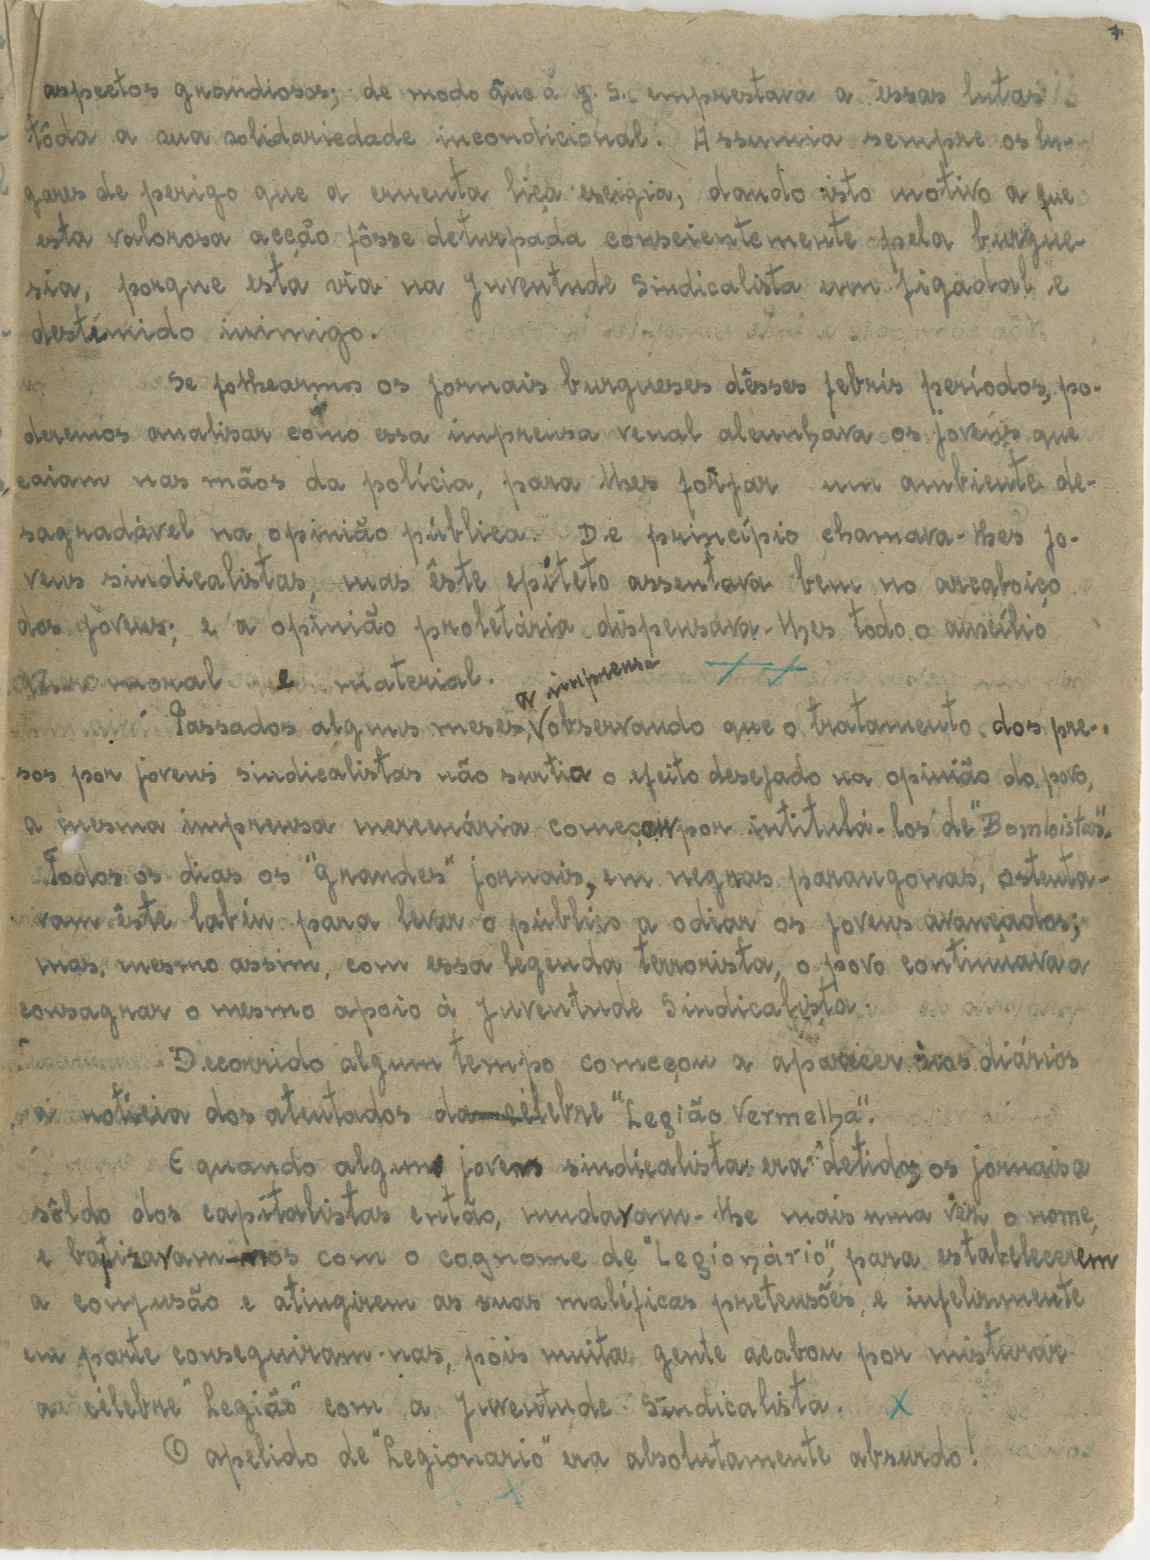 aspectos grandiosos; de modo que a J. S. emprestava a essas lutas
tôda a sua solidariedade incondicional. Assumia sempre os lu-
gares de perigo que a cruenta liça exigia, dando isto motivo a que
esta valorosa acção fôsse deturpada conscientemente pela burgue-
sia, porque esta via na Juventude Sindicalista um figadal e
destemido inimigo.
Se folhearmos os jornais burgueses dêsses febris períodos, po-
deremos analisar como essa imprensa venal alcunhava os jovens que
caiam nas mãos da polícia, para lhes forjar um ambiente de-
sagradável na opinião pública. De princípio chamava-lhes jo-
vens sindicalistas, mas êste epíteto assentava bem no arcaboiço
dos jovens; e a opinião proletária dispensava-lhes todo o auxílio
moral e material.
a imprensa
Passados alguns meses, observando que o tratamento dos pre-
sos por jovens sindicalistas não surtia o efeito desejado na opinião do povo,
a mesma imprensa mercenária começou por intitulá-los de "Bombistas".
Todos os dias os "grandes" jornais, em negras parangonas, ostenta-
vam êste labéu para levar o público a odiar os jovens avançados;
mas, mesmo assim, com essa legenda terrorista, o povo continuava a
consagrar o mesmo apoio á Juventude Sindicalista.
Decorrido algum tempo começou a aparecer nos diários
a notícia dos atentados da célebre "Legião Vermelha".
E quando algum jovem sindicalista era detido, os jornais a
sôldo dos capitalistas então, mudavam-lhe mais uma vez o nome,
e batizavam-nos com o cognome de "Legionário", para estabelecerem
a confusão e atingirem as suas maléficas pretensões, e infelizmente
em parte conseguiram-nas, pois muita gente acabou por misturar
a célebre "Legião" com a Juventude Sindicalista. X
O apelido de "Legionario" era absolutamente absurdo!